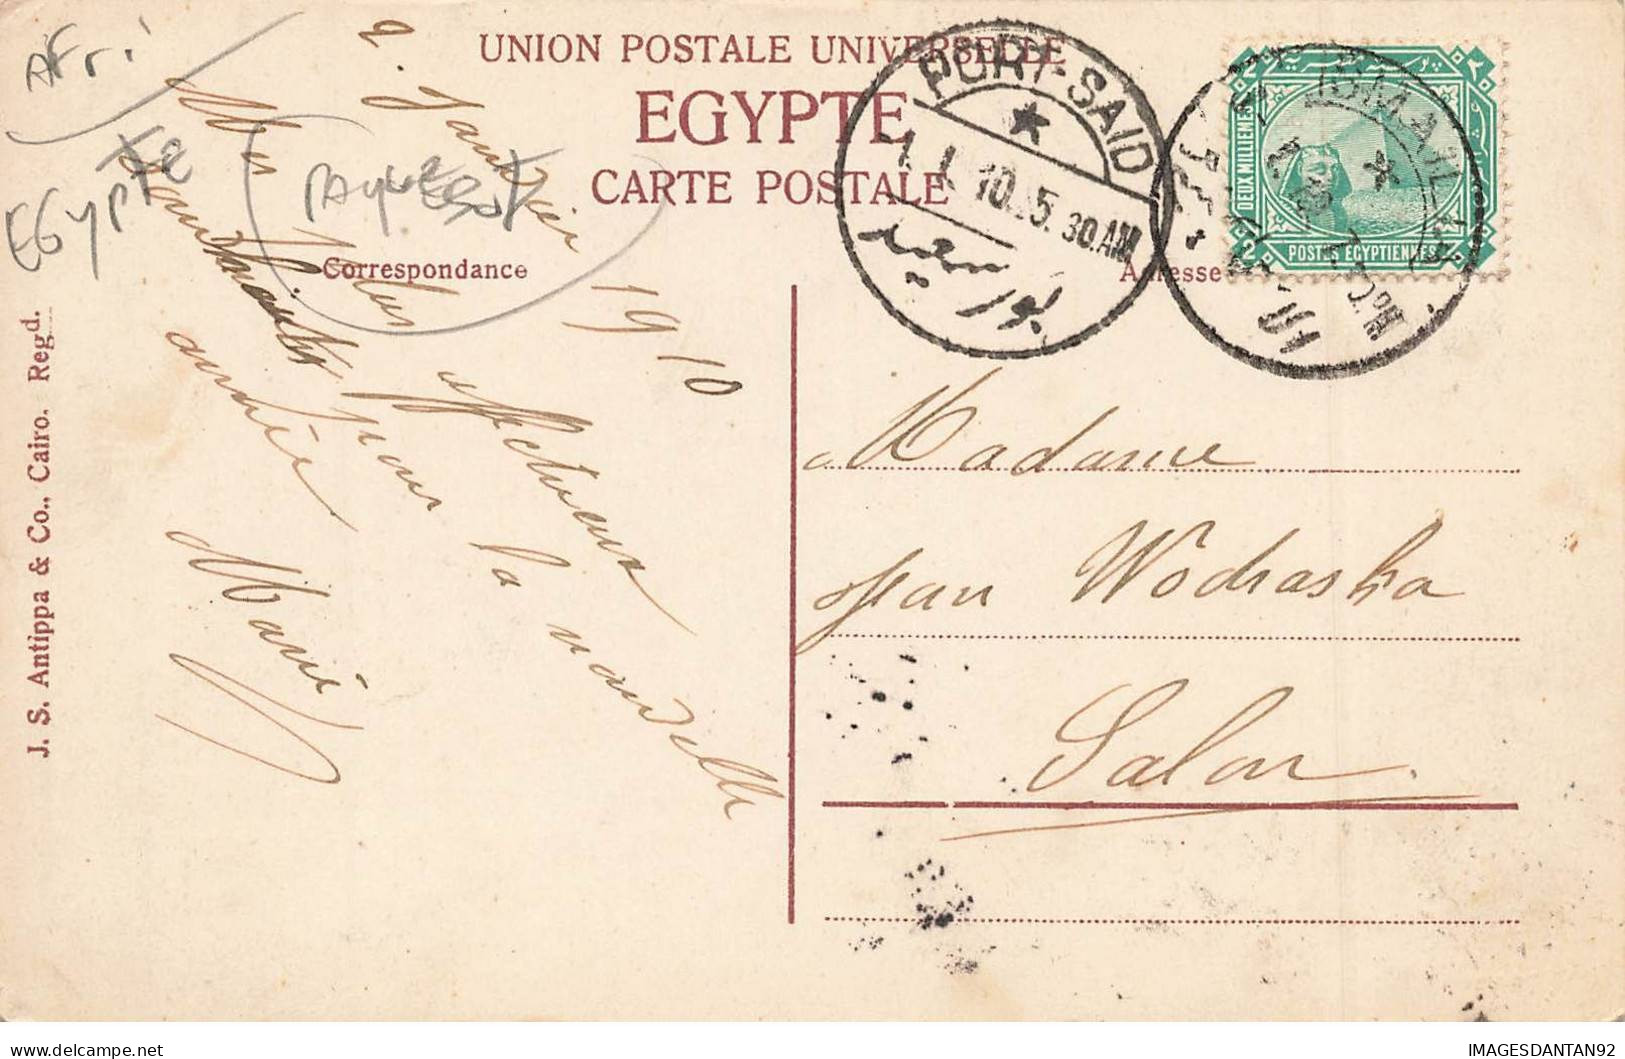 UNION POSTALE UNIVERSELLE
EGYPTE
CARTE POSTALE
Correspondance
Adresse
J. S. Antippa & Co., Cairo. Regd.
Afri
EGypte
PORT-SAID
1. I. 10. 5.30 AM
بور سعيد
ISMAILIA
PM
DEUX MILLIEMES
POSTES EGYPTIENNES
2. Janvier 1910
Mes plus affectueux
souhaits pour la nouvelle
année
Marie
Madame
Jean Wodraska
Salon
IMAGESDANTAN92